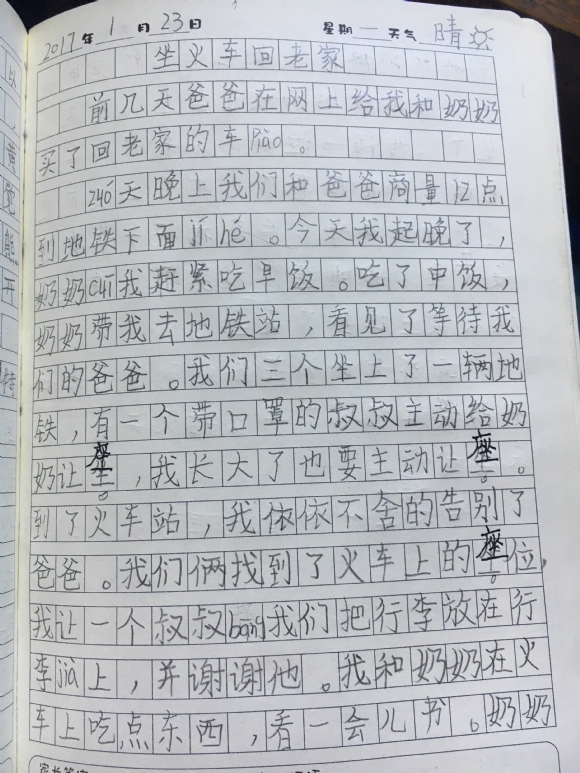 2017年 1 月 23 日 星期 一 天气 晴
坐火车回老家
前几天爸爸在网上给我和奶奶
买了回老家的车piào。
zuó天晚上我们和爸爸商量12点
到地铁下面jí hé。今天我起晚了，
奶奶cuī我赶紧吃早饭。吃了中饭，
奶奶带我去地铁站，看见了等待我
们的爸爸。我们三个坐上了一辆地
铁，有一个带口罩的叔叔主动给奶
奶让座，我长大了也要主动让座。
到了火车站，我依依不舍的告别了
爸爸。我们俩找到了火车上的座位，
我让一个叔叔bāng我们把行李放在行
李jià上，并谢谢他。我和奶奶在火
车上吃点东西，看一会儿书。奶奶